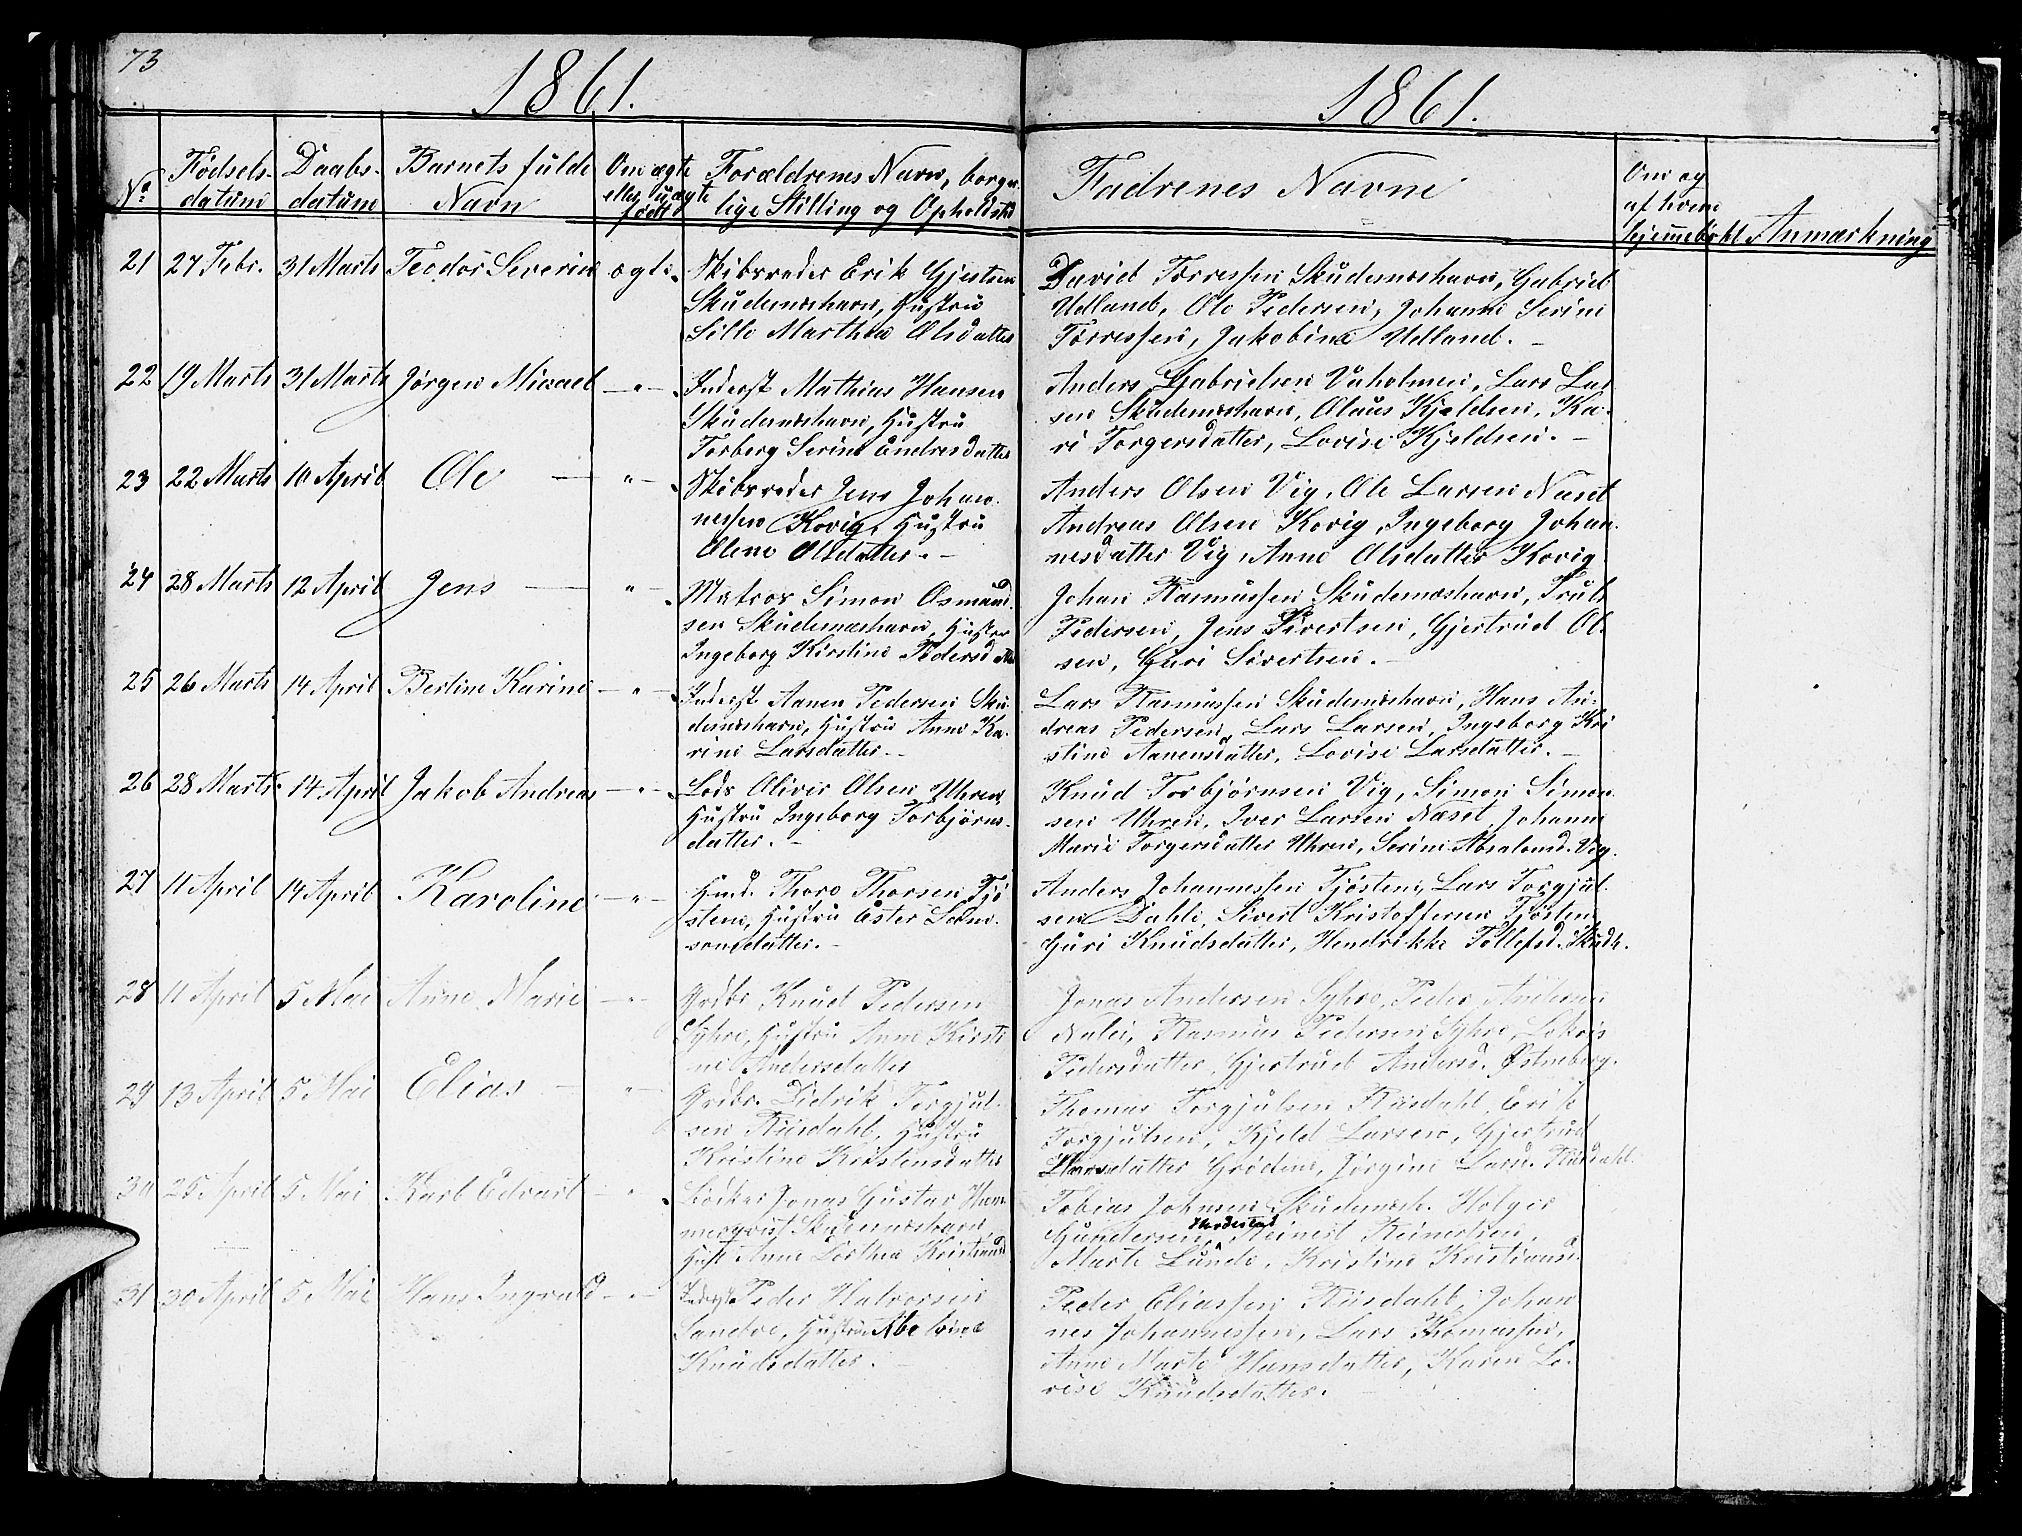 73
1861.
1861.
No Fødsels- datum Daabs- datum Barnets fulde Navn Om ægte eller uægte født Forældrenes Navn, borger- lige Stilling og Opholdssted
Fadrenes Navne Om og af hvem hjemmedøbt Anmærkning
21 27 Febr. 31 Marts Teodor Severin ægte Skibsreder Erik Gjertsen
Skudesnæshavn, Hustru
Sille Marthea Olsdatter
David Torressen Skudesnæshavn, Gabriel
Udland, Ole Pedersen, Johanne Serine
Torressen, Jakobine Udland. -
22 19 Marts 31 Marts Jørgen Micael -"- Inderst Mathias Hansen
Skudesnæshavn, Hustru
Torberg Serine Endresdatter
Anders Gabrielsen Vaholmen, Lars Lar
sen Skudesnæshavn, Olaus Kjeldsen, Ka-
ri Torgersdatter, Lovise Kjeldsen. -
23 22 Marts 10 April Ole - " - Skibsreder Jens Johan-
nessen Kovig, Hustru
Olene Olsdatter. -
Anders Olsen Vig, Ole Larsen Næset
Andreas Olsen Kovig, Ingeborg Johan-
nesdatter Vig, Anne Olsdatter Kovig
24 28 Marts 12 April Jens - " - Matros Simon Osmund-
sen Skudesnæshavn, Hustru
Ingeborg Kirstine Pedersd
Johan Rasmussen Skudesnæshavn, Truls
Pedersen, Jens Sivertsen, Gjertrud Ol-
sen, Guri Sivertsen. -
25 26 Marts 14 April Bertine Karine - " - Inderst Aanen Pedersen Sku-
desnæshavn, Hustru Anne Ka-
rine Larsdatter. -
Lars Rasmussen Skudesnæshavn, Hans An-
dreas Pedersen, Lars Larsen, Ingeborg Kri
stine Aanensdatter, Lovise Larsdatter. -
26 28 Marts 14 April Jakob Andreas - " - Lods Oliver Olsen Uhren,
Hustru Ingeborg Torbjørns-
datter. -
Knud Torbjørnsen Vig, Simon Simon-
sen Uhren, Iver Larsen Næset, Johanne
Marie Torgersdatter Uhren, Serine Absalomsd. Vig.
27 11 April 14 April Karoline - " - Huusm. Thore Thorsen Tjø
sten, Hustru Ester Salm-
sonsdatter. -
Anders Johannessen Tjøsten, Lars Torgjul-
sen Dahle, Sivert Kristoffersen Tjøsten
Guri Knudsdatter, Hendrikke Tollefsd. Skudh.
28 11 April 5 Mai Anne Marie - " - Grdbr. Knud Pedersen
Syhre, Hustru Anne Kirsti
ne Andersdatter
Jonas Andersen Syhre, Peder Andersen
Nalei, Rasmus Pedersen Syhre,
Pedersdatter, Gjertrud Andersd. Østneberg.
29 13 April 5 Mai Elias - " - Grdbr. Didrik Torgjul-
sen Riisdahl, Hustru
Kristine Kristensdatter
Thomas Torgjulsen Riisdahl, Erik
Torgjulsen, Kjeld Larsen, Gjertrud
Larsdatter Grødene, Jørgine Larsd. Riisdahl.
30 25 April 5 Mai Karl Edvart - " - Bødker Jonas Gustav Ham-
merqvist Skudesnæshavn
Hust Anne Dorthea Kristiansd
Tobias Johnsen Skudesnæsh. Holger
Gundersen, Reinert Reinertsen,
Marte Lunde, Kristine Kristiansd.
31 30 April 5 Mai Hans Ingvald - " - Inderst Peder Halvorsen
Sandve, Hustru Abelone
Knudsdatter. -
Peder Eliassen Riisdahl, Johan
nes Johannessen, Lars Thomassen,
Anne Marte Hansdatter, Karen Lo-
vise Knudsdatter. -